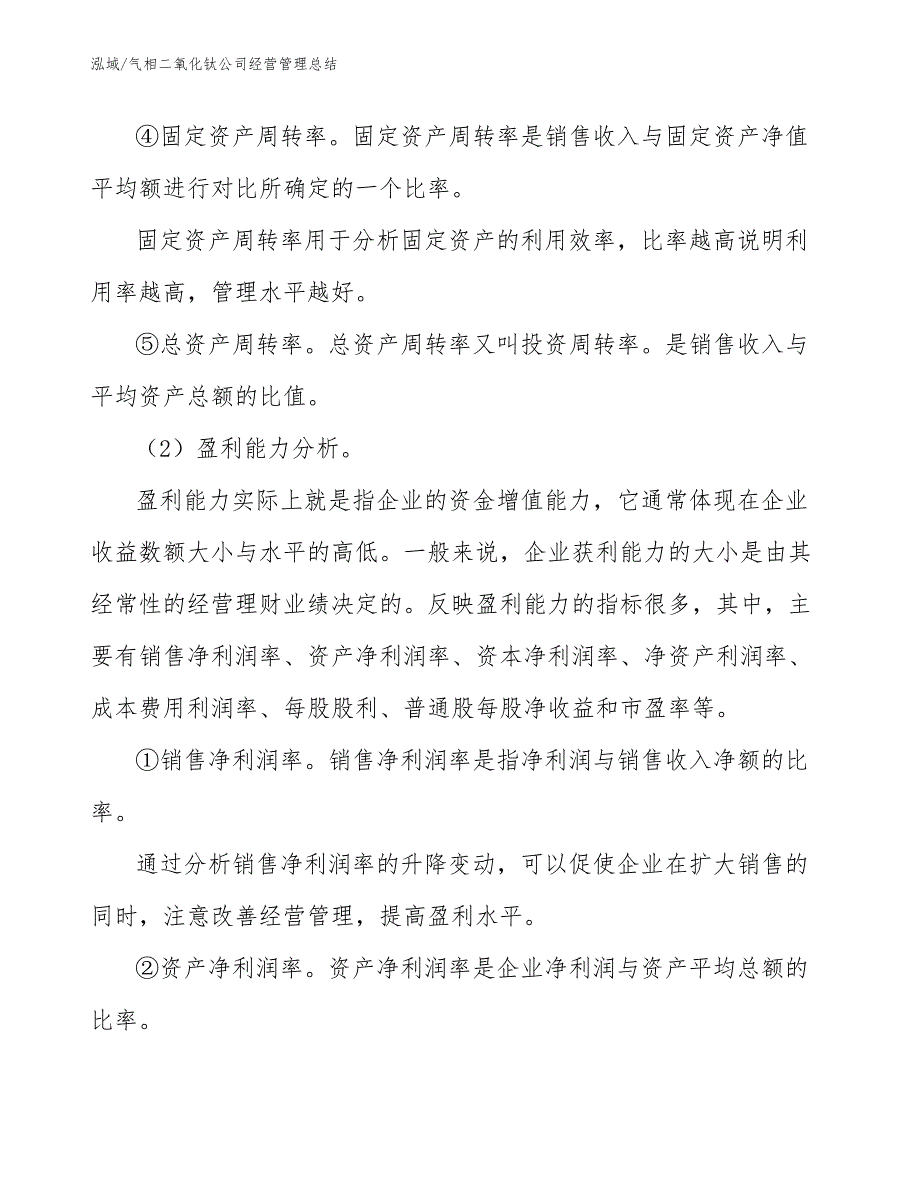 泓域/气相二氧化钛公司经营管理总结
④固定资产周转率。固定资产周转率是销售收入与固定资产净值
平均额进行对比所确定的一个比率。
固定资产周转率用于分析固定资产的利用效率，比率越高说明利
用率越高，管理水平越好。
⑤总资产周转率。总资产周转率又叫投资周转率。是销售收入与
平均资产总额的比值。
（2）盈利能力分析。
盈利能力实际上就是指企业的资金增值能力，它通常体现在企业
收益数额大小与水平的高低。一般来说，企业获利能力的大小是由其
经常性的经营理财业绩决定的。反映盈利能力的指标很多，其中，主
要有销售净利润率、资产净利润率、资本净利润率、净资产利润率、
成本费用利润率、每股股利、普通股每股净收益和市盈率等。
①销售净利润率。销售净利润率是指净利润与销售收入净额的比
率。
通过分析销售净利润率的升降变动，可以促使企业在扩大销售的
同时，注意改善经营管理，提高盈利水平。
②资产净利润率。资产净利润率是企业净利润与资产平均总额的
比率。